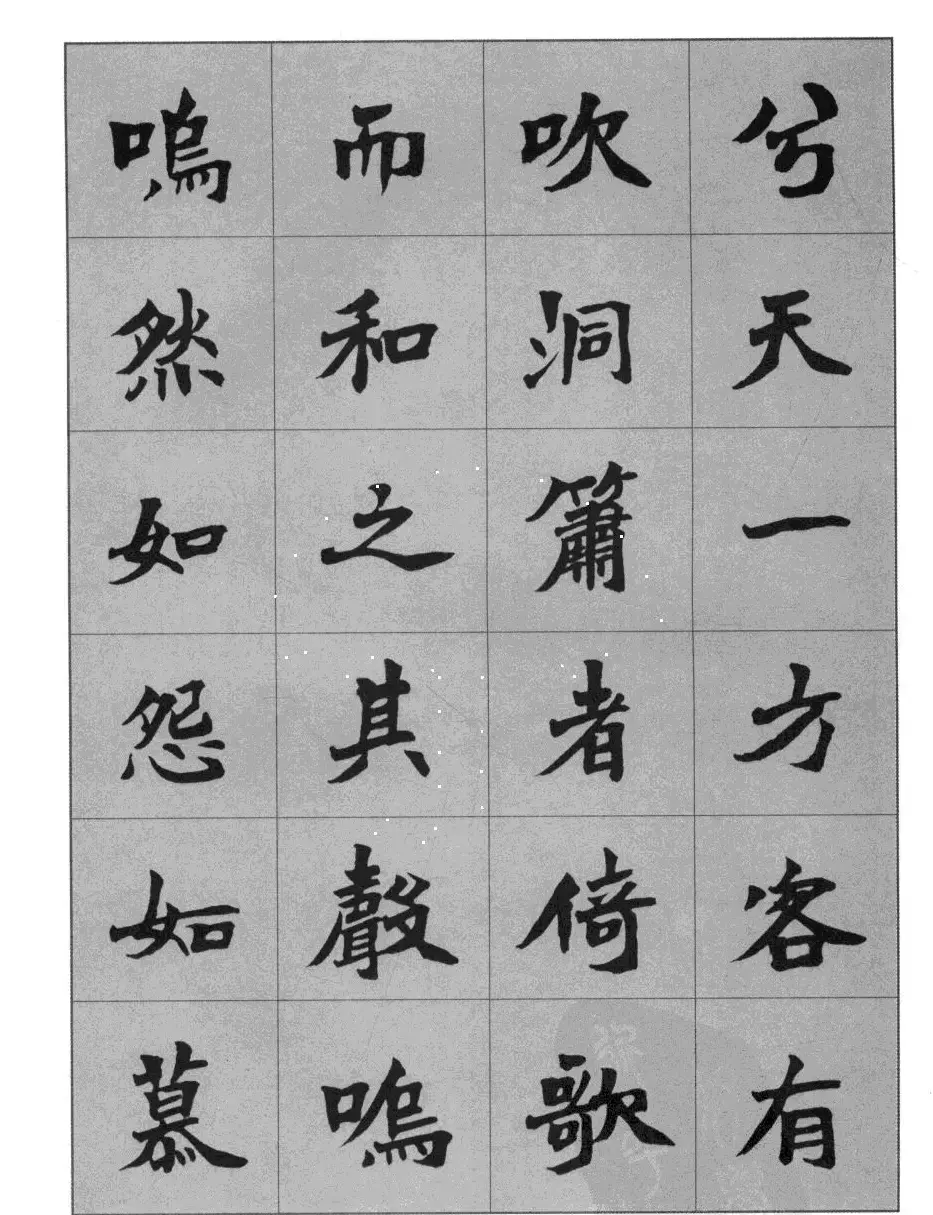 兮天一方客有
吹洞簫者倚歌
而和之其聲嗚
嗚然如怨如慕